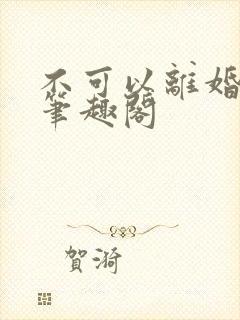 不可以離婚
筆趣閣
賀漪